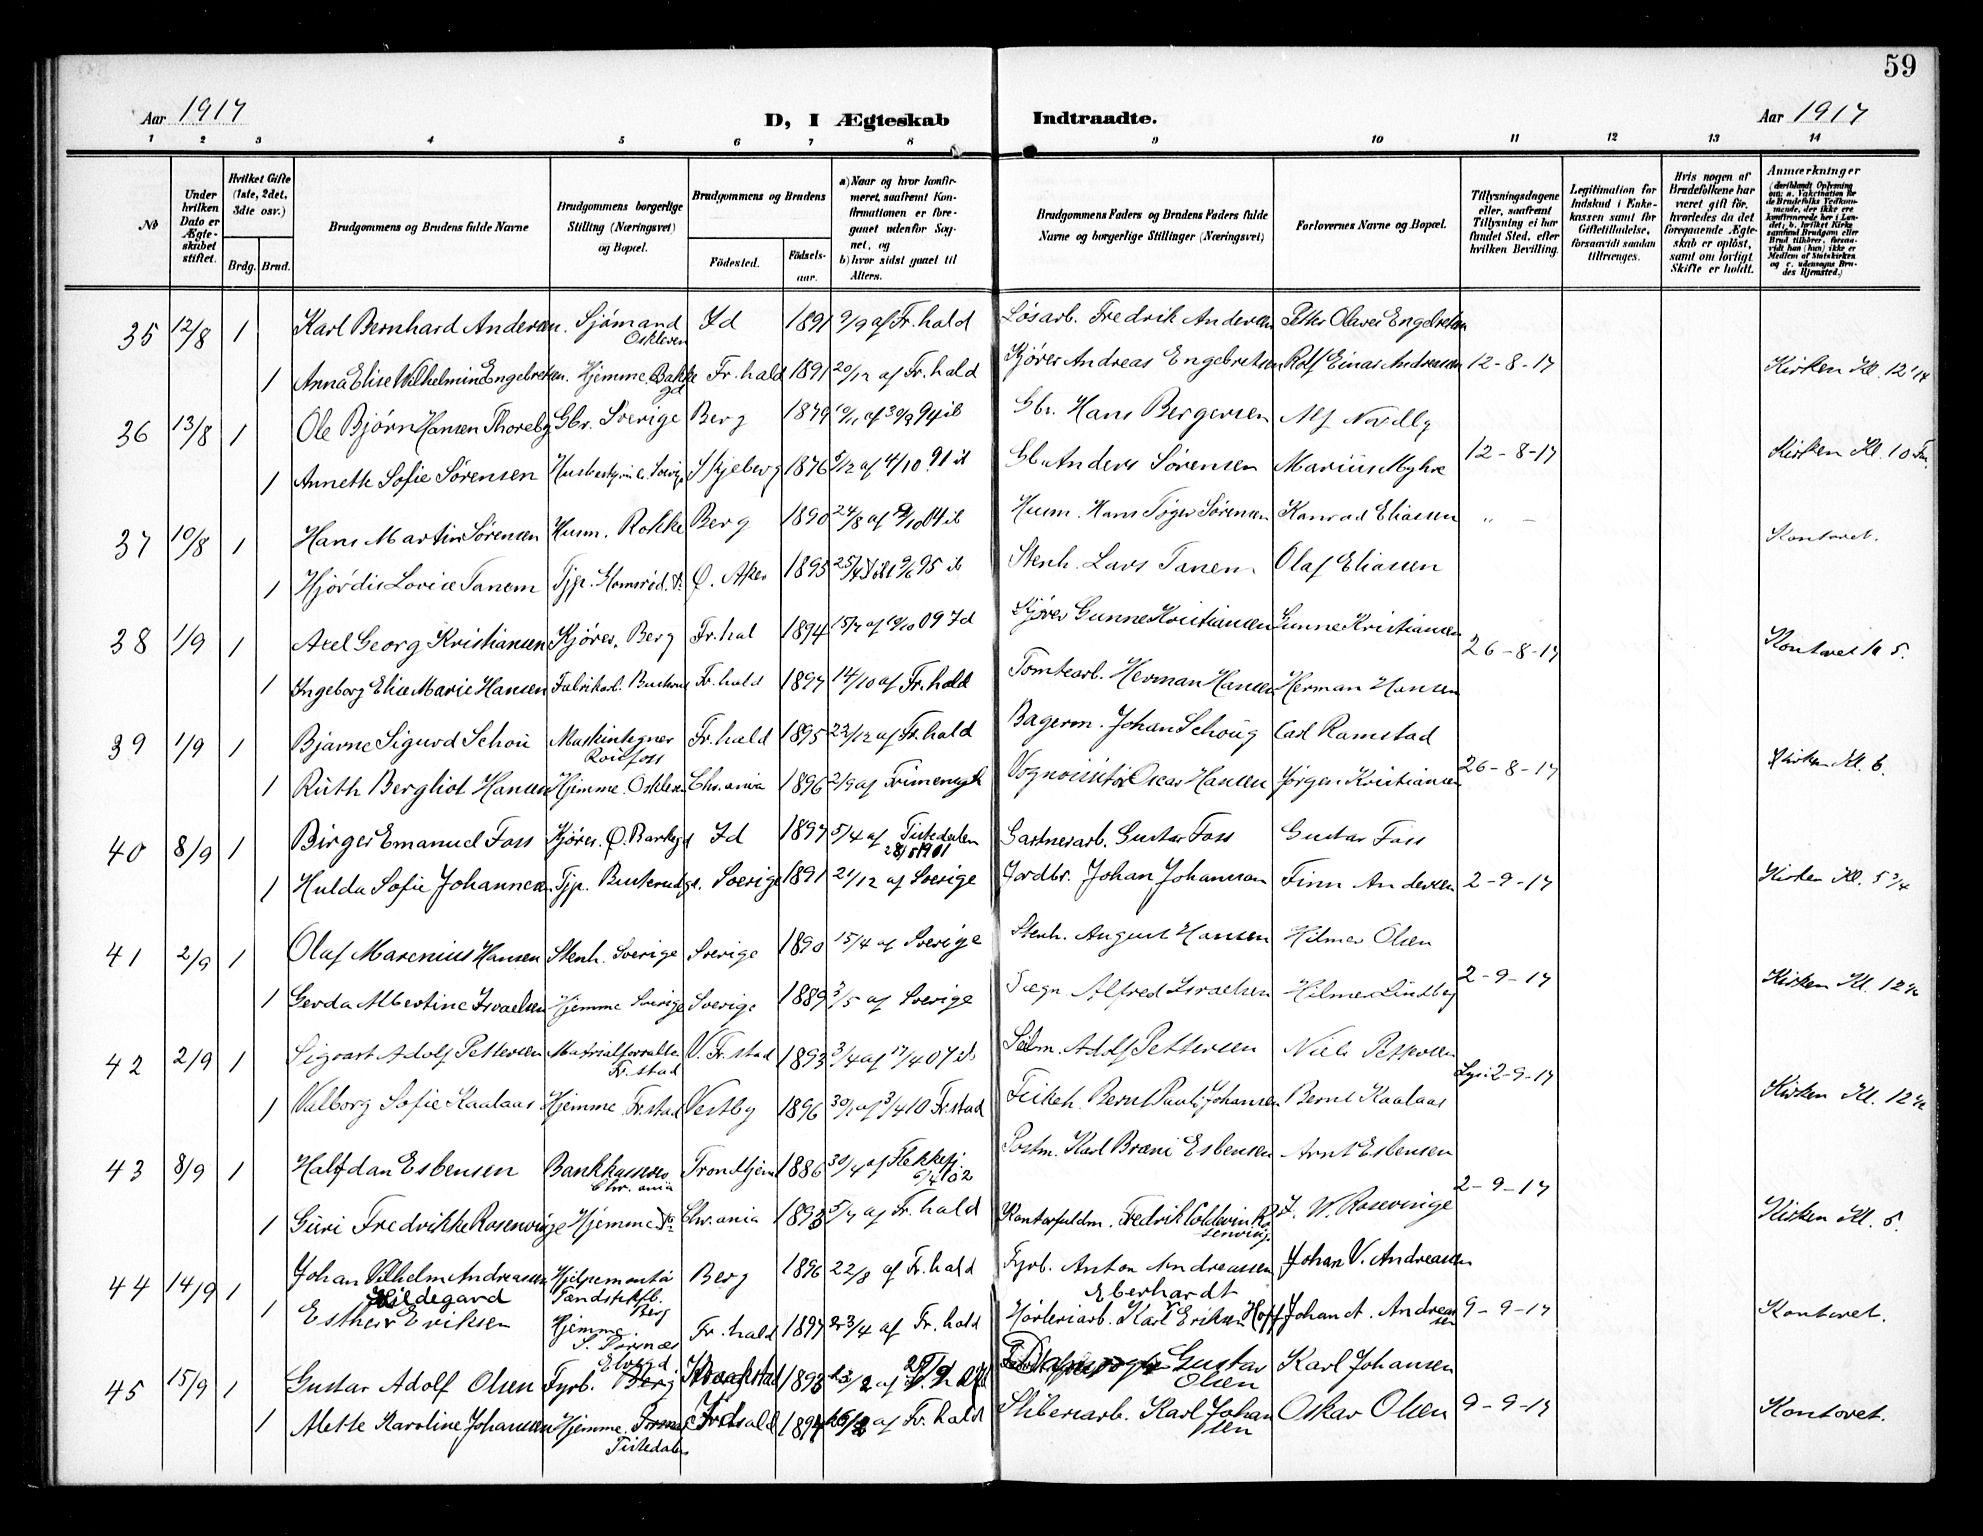 59
Aar 1917 D, I Ægteskab Indtraadte. Aar 1917
1 2 3 4 5 6 7 8 9 10 11 12 13 14
No
Under hvilken Dato er Ægteskabet stiftet.
Hvilket Gifte (1ste, 2det, 3dte osv.)
Brdg. Brud.
Brudgommens og Brudens fulde Navne
Brudgommens borgerlige Stilling (Næringsvei) og Bopæl.
Brudgommens og Brudens
Fødested. Fødselsaar.
a) Naar og hvor konfirmeret, saafremt Konfirmationen er foregaaet udenfor Sognet, og
b) hvor sidst gaaet til Alters.
Brudgommens Faders og Brudens Faders fulde Navne og borgerlige Stillinger (Næringsvei)
Forlovernes Navne og Bopæl.
Tillysningsdagene eller, saafremt Tillysning ei har fundet Sted, efter hvilken Bevilling.
Legitimation for Indskud i Enkekassen samt for Giftetilladelse, forsaavidt saadan tiltrænges.
Hvis nogen af Brudefolkene har været gift før, hvorledes da det foregaaende Ægteskab er opløst, samt om lovligt Skifte er holdt.
Anmærkninger
35 12/8 1 Karl Bernhard Andersen. Sjømand Oskleven Id 1891 9/9 af Fr.hald Løsarb. Fredrik Andersen Peter Olaves Engebretsen
1 Anna Elise Vilhelmine Engebretsen. Hjemme. Bakke Fr.hald 1891 20/12 af Fr.hald Kjører Andreas Engebretsen Rolf Einar Andreassen 12-8-17 Kirken Kl. 12 1/4
36 13/8 1 Ole Bjørn Hansen Thoreby Gbr. Sverige Berg 1879 af 30/9 94 ib Gbr. Hans Bergersen Alf Nordby
1 Annette Sofie Sørensen Skjeberg 1876 af 4/10 91 ib Gbr. Anders Sørensen Marius Myhre 12-8-17 Kirken Kl. 10 Fm.
37 10/8 1 Hans Martin Sørensen Husm. Rokke Berg 1890 24/8 af 04 ib Husm. Hans Tøger Sørensen Konrad Eliassen " -
1 Hjørdis Lovise Tanem Tjp. Ø. Aker 1895 Stenh. Lars Tanem Olaf Eliassen Kontoret.
38 1/9 1 Axel Georg Kristiansen Kjører. Berg Fr.hal 1894 15/7 af 09 Id Kjører Gunne Kristiansen Gunne Kristiansen
1 Ingeborg Elise Marie Hansen Fr.hald 1897 14/10 af Fr.hald Tomtearb. Herman Hansen Herman Hansen 26-8-17 Kontoret kl 5.
39 1/9 1 Bjarne Sigurd Schou Maskintegner Roufoss Fr.hald 1895 22/12 af Fr.hald Bagerm. Johan Schoug Carl Ramstad
1 Ruth Bergliot Hansen Hjemme. Oskleven Chr.ania 1896 2/9 af Frimenigh Vognvisitør Oscar Hansen Jørgen Kristiansen 26-8-17 Kirken Kl. 6.
40 8/9 1 Birger Emanuel Foss Kjører. Id 1897 5/4 af Tistedalen Gartnerarb. Gustav Foss Gustav Foss
28/5 1901
1 Hulda Sofie Johannesen Tjp. Sverige 1891 21/12 af Sverige Jordbr. Johan Johansson Finn Andersen 2-9-17 Kirken Kl. 5 3/4
41 2/9 1 Olaf Marenius Hansen Stenh. Sverige Sverige 1890 15/4 af Sverige Stenh. August Hansen Hilmer Olsen
1 Gerda Albertine Israelsen Hjemme Sverige Sverige 1889 3/5 af Sverige Alfred Israelsen Hilmer Lindby 2-9-17 Kirken Kl. 12 1/2
42 2/9 1 Sigvart Adolf Pettersen Matrialforvalter Fr.stad V. Fr.stad 1893 3/4 af 17/4 07 ib Adolf Pettersen Niels
1 Valborg Sofie Kaalaas Hjemme. Fr.stad Vestby 1896 30/1 af 3/4 10 Fr.stad Bernt Pauli Johansen Bernt Kaalaas 2-9-17 Kirken Kl. 12 1/2
43 8/9 1 Halfdan Esbensen Bankkasserer Chr.ania Trondhjem 1886 30/4 af Flekkefj 6/4 102 Postm. Karl Esbensen Arnt Esbensen
1 Guri Fredrikke Rosenvinge Hjemme Chr.ania 1893 5/7 af Fr.hald Kontorfuldm. Fredrik Coldevin Rosenvinge J. W. Rosevinge 2-9-17 Kirken Kl. 5.
44 14/9 1 Johan Vilhelm Andreassen Hjelpemontør Tandstikfb. Berg Berg 1896 22/8 af Fr.hald Fyrb. Anton Andreassen Johan V. Andreassen
1 Esther Hildegard Eriksen Hjemme. Fr.hald 1897 23/4 af Fr.hald Karl Eberhardt Eriksen Hoff Johan A. Andreassen 9-9-17 Kontoret.
45 15/9 1 Gustav Adolf Olsen Fyrb. Berg Kraakstad 1893 Gustav Olsen Karl Johansen
1 Alette Karoline Johansen Hjemme. Tistedalen 1894 af Fr.hald Sliberiarb. Karl Johansen Oskar Olsen 9-9-17 Kontoret.